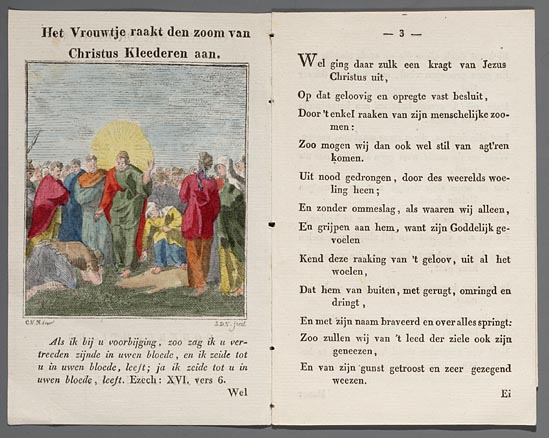 Het Vrouwtje raakt den zoom van
Christus Kleederen aan.
Als ik bij u voorbijging, zoo zag ik u ver-
treeden zijnde in uwen bloede, en ik zeide tot
u in uwen bloede, leeft; ja ik zeide tot u in
uwen bloede, leeft. Ezech: XVI. vers 6.
Wel
— 3 —
Wel ging daar zulk een kragt van Jezus
Christus uit,
Op dat geloovig en opregte vast besluit,
Door 't enkel raaken van zijn menschelijke zoo-
men:
Zoo mogen wij dan ook wel stil van agt'ren
komen.
Uit nood gedrongen, door des weerelds woe-
ling heen;
En zonder ommeslag, als waaren wij alleen,
En grijpen aan hem, want zijn Goddelijk ge-
voelen
Kend deze raaking van 't geloov, uit al het
woelen,
Dat hem van buiten, met gerugt, omringd en
dringt,
En met zijn naam braveerd en over alles springt:
Zoo zullen wij van 't leed der ziele ook zijn
geneezen,
En van zijn gunst getroost en zeer gezegend
weezen.
Ei